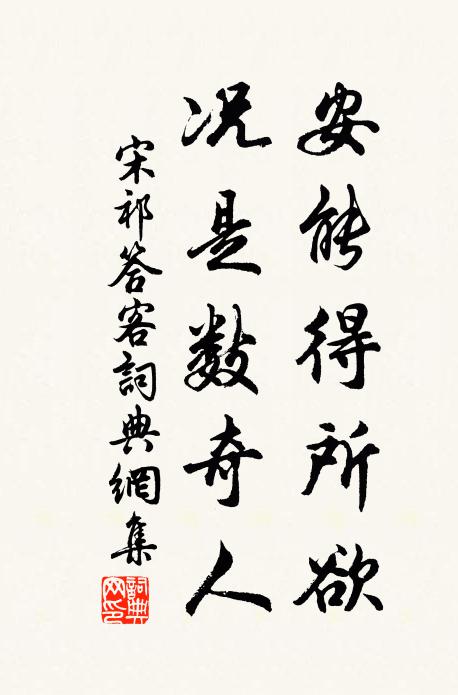 安能得所欲
况是数奇人
宋祁答客詞典網集
詞典网印